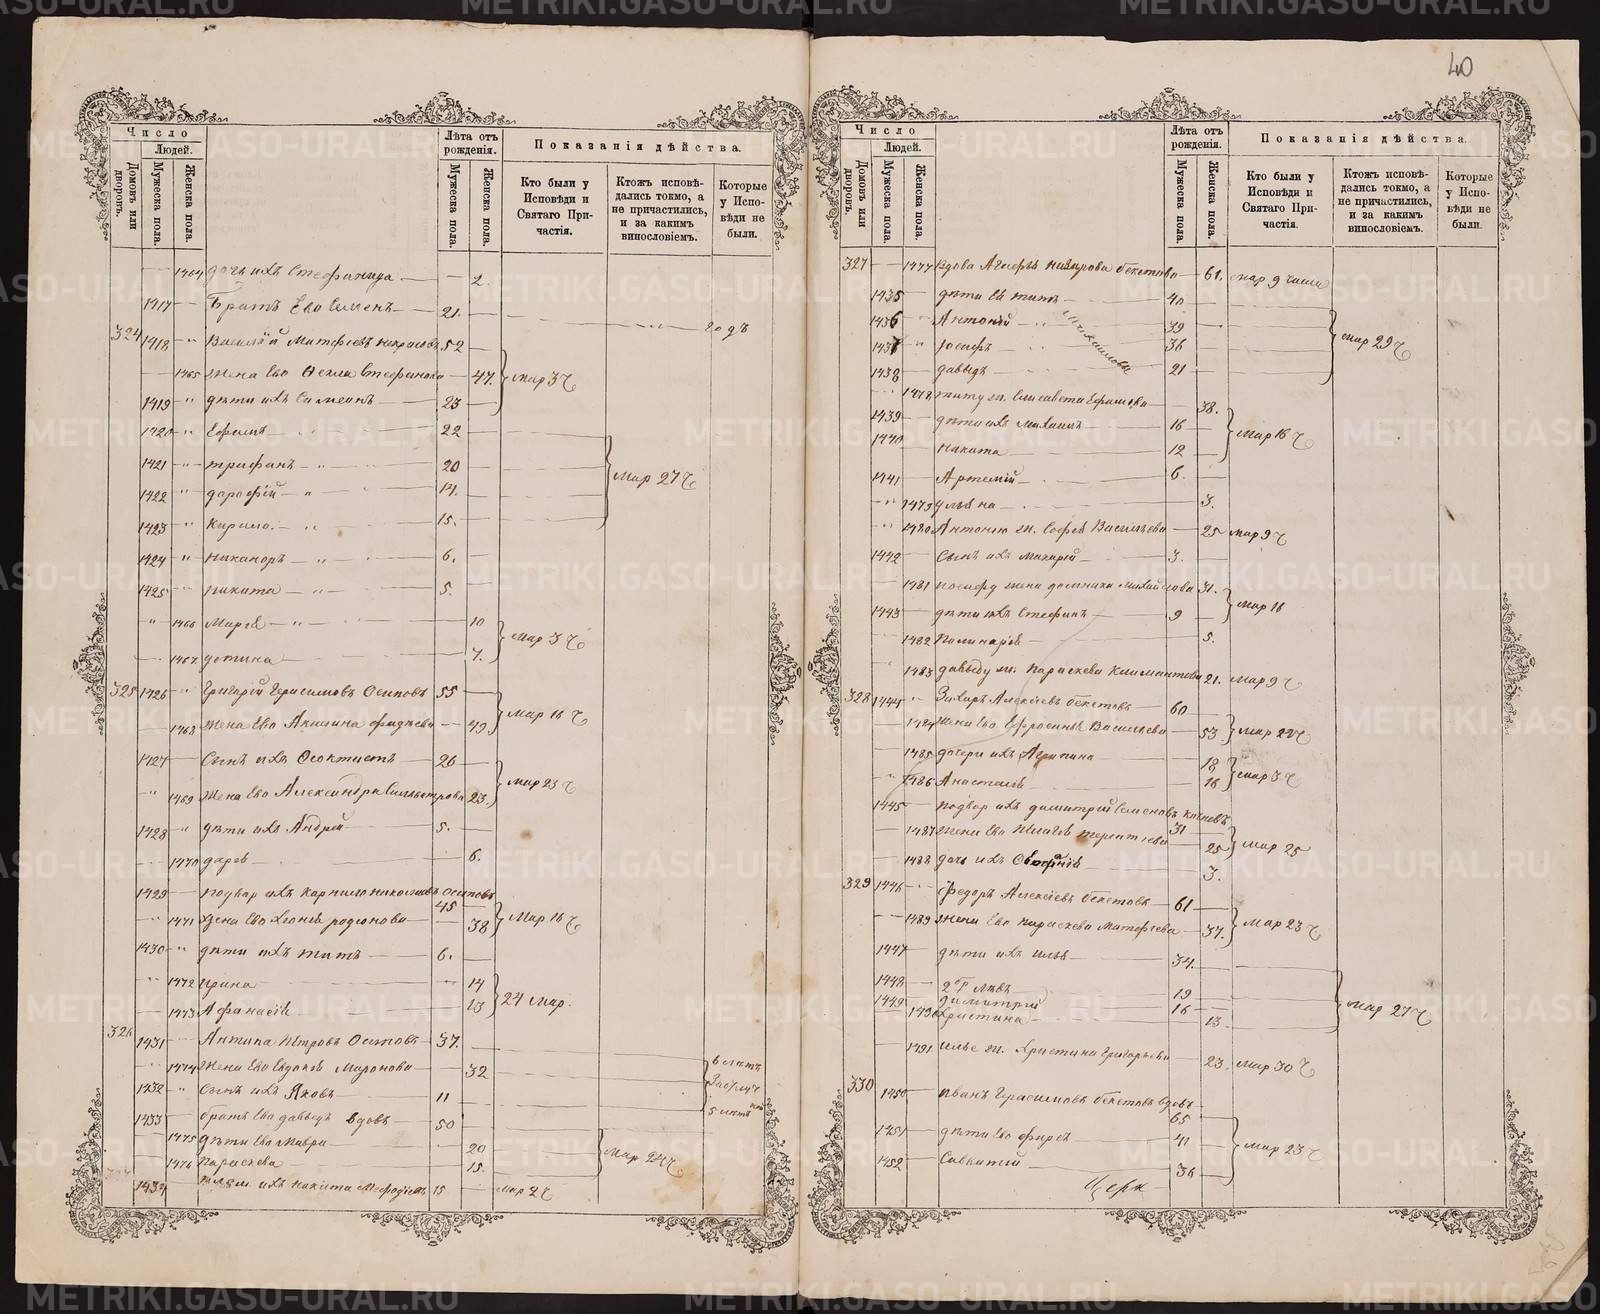 40
Число
Людей.
Домовъ или дворовъ.
Мужеска пола.
Женска пола.
Лѣта отъ рожденія.
Мужеска пола.
Женска пола.
Показанія дѣйства.
Кто были у Исповѣди и Святаго Причастія.
Ктожъ исповѣдались токмо, а не причастились, и за какимъ винословіемъ.
Которые у Исповѣди не были.
1464 дочь ихъ Стефанида 2.
1417 Братъ Его Семенъ 21. годъ
324 1418 " Василій Матфеевъ Некрасовъ 52
1465 жена Его Фекла Стефанова 47. Мар 3 ч
1419 " дѣти ихъ Симеонъ 23
1420 " Ефимъ 22
1421 " Трифанъ 20
1422 " дорофей 17. Мар 27 ч
1423 " Кирило 15.
1424 " Никаноръ 6.
1425 " Никита 5.
" 1466 Марія 10
1467 устина 7. Мар 3 ч
325 1426 " Григорій Герасимовъ Осиповъ 55
1468 жена Его Акилина фадѣева 49 Мар 16 ч
1427 Сынъ ихъ Феоктистъ 26
" 1469 жена Его Александра 23. Мар 23 ч
1428 " дѣти ихъ Андрей 5.
1470 дарія 6.
1429 подвор ихъ Карнило николаевъ Осиповъ 45
" 1471 жена Его родіонова 38 Мар 16 ч
1430 " дѣти ихъ титъ 6.
1472 ирина 14
1473 Афанасія 13 24 Мар.
326 1431 Антипа Петровъ Осиповъ 37.
1474 жена Его Евдокія Миронова 32 6 лѣтъ
1432 " Сынъ ихъ Яковъ 11
1433 братъ Его давыдъ вдовъ 50 5 лѣтъ
1475 дѣти Его Мавра 20
1476 параскева 15. Мар 24 ч
1434 плем. ихъ никита Мефодіевъ 15 мар 2 ч
Число
Людей.
Домовъ или дворовъ.
Мужеска пола.
Женска пола.
Лѣта отъ рожденія.
Мужеска пола.
Женска пола.
Показанія дѣйства.
Кто были у Исповѣди и Святаго Причастія.
Ктожъ исповѣдались токмо, а не причастились, и за какимъ винословіемъ.
Которые у Исповѣди не были.
327 1477 вдова Агафья Назарова бекетова 61. мар 9 числа
1435 дѣти Ея титъ 40
1436 Антоній 39
1437 Іосифъ 36 мар 29 ч
Михайловы
1438 давыдъ 21
1478 титу ж. Елисавета Ефимова 38.
1439 дѣти ихъ михаилъ 16 Мар 16 ч
1440 никита 12
1441 Артемій 6.
1479 ульяна 3.
1480 Антонію ж. Софья Васильева 25 мар 9 ч
1442 Сынъ ихъ макарій 3.
1481 иосифу жена домника михайлова 31.
1443 дѣти ихъ Стефанъ 9 Мар 16
1482 Полинарія 5.
1483 давыду ж. Параскева Климантова 21. Мар 9 ч
328 1444 " Захаръ Алексѣевъ бекетовъ 60
1484 жена Его Ефросинья Васильева 53 Мар 22 ч
1485 дочери ихъ Агрипина 18
1486 Анастасія 16 мар 3 ч
1445 подвор ихъ димитрій Семеновъ 31
1487 жена Его Пелагея терентіева 25 Мар 25
1488 дочь ихъ 3.
329 1446 " Федоръ Алексѣевъ бекетовъ 61
1489 жена Его параскева Матфѣева 37. Мар 23 ч
1447 дѣти ихъ илья 34.
1448 2й Левъ 19
1449 димитрій 16 Мар 27 ч
1490 христина 13
1491 илье ж. Христина Григорьева 23 Мар 30 ч
330 1450 иванъ Герасимовъ бекетовъ вдовъ 65
1451 дѣти Его фирсъ 41 Мар 23 ч
1452 Савватій 36
Церк